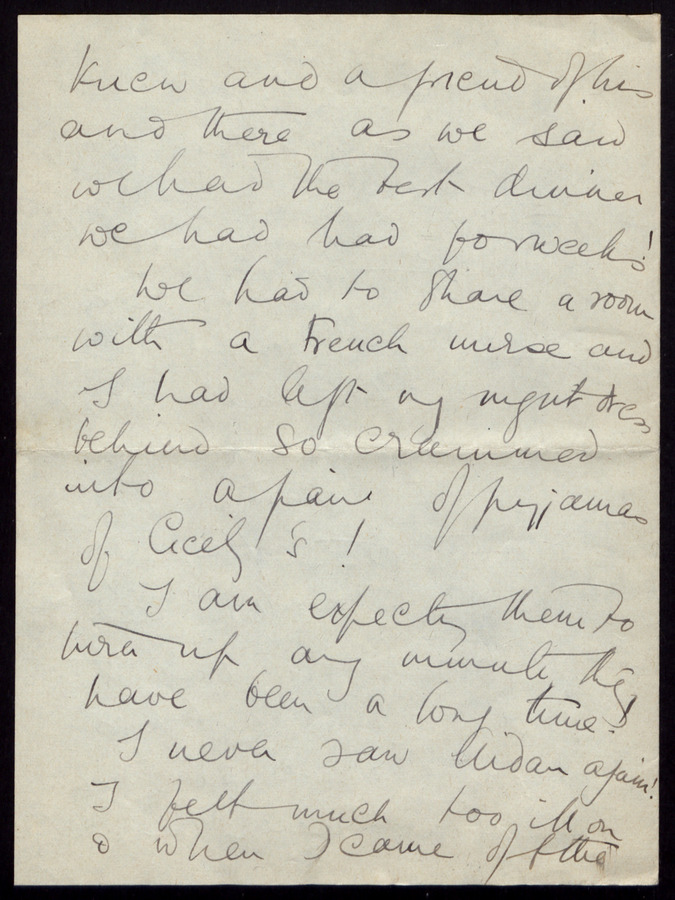 knew and a friend of his
and there as we said
we had the best dinner
we had had for weeks!
We had to share a room
with a French nurse and
I had left my night dress
behind so crammed
into a pair of pyjamas
of Cicely's!
I am expecting them to
turn up any minute they
have been a long time!
I never saw Aidan again!
I felt much too ill on
& when I came off the